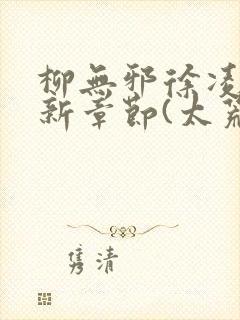 柳無邪徐凌
新章節(太荒
隽清